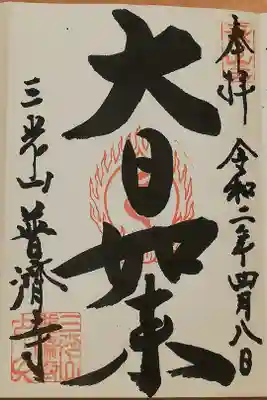 奉拝
令和二年四月八日
大日如来
三光山
普濟寺